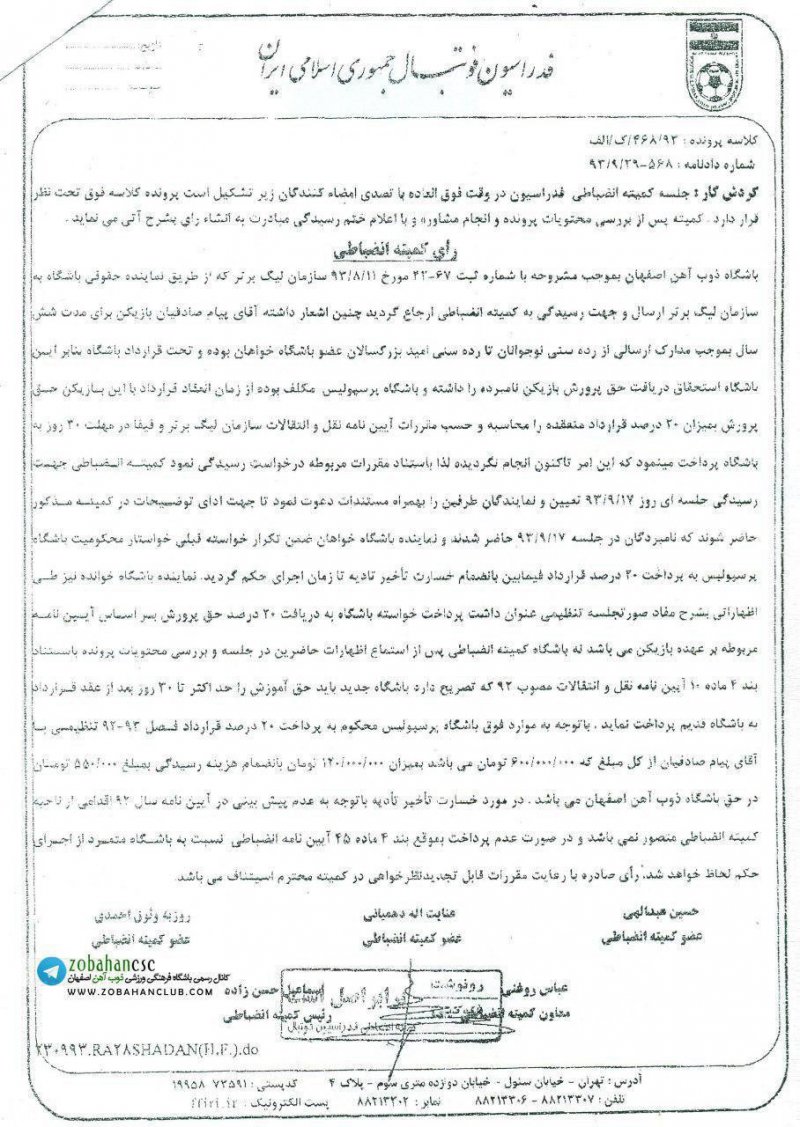 فدراسیون فوتبال جمهوری اسلامی ایران
کلاسه پرونده : ۴۶۸/۹۳/ک/الف
شماره دادنامه : ۵۶۸-۹۳/۹/۲۹
گردش کار : جلسه کمیته انضباطی فدراسیون در وقت فوق العاده با تصدی امضاء کنندگان زیر تشکیل است پرونده کلاسه فوق تحت نظر
قرار دارد . کمیته پس از بررسی محتویات پرونده و انجام مشاوره و با اعلام ختم رسیدگی مبادرت به انشاء رای بشرح آتی می نماید .
رأی کمیته انضباطی
باشگاه ذوب آهن اصفهان بموجب مشروحه با شماره ثبت ۶۷-۴۲ مورخ ۹۳/۸/۱۱ سازمان لیگ برتر که از طریق نماینده حقوقی باشگاه به
سازمان لیگ برتر ارسال و جهت رسیدگی به کمیته انضباطی ارجاع گردید چنین اشعار داشته آقای پیام صادقیان بازیکن برای مدت شش
سال بموجب مدارک ارسالی از رده سنی نوجوانان تا رده سنی امید بزرگسالان عضو باشگاه خواهان بوده و تحت قرارداد باشگاه بنابر این
باشگاه استحقاق دریافت حق پرورش بازیکن نامبرده را داشته و باشگاه پرسپولیس مکلف بوده از زمان انعقاد قرارداد با این بازیکن حق
پرورش بمیزان ۲۰ درصد قرارداد منعقده را محاسبه و حسب مقررات آیین نامه نقل و انتقالات سازمان لیگ برتر و فیفا در مهلت ۳۰ روز به
باشگاه پرداخت مینمود که این امر تاکنون انجام نگردیده لذا باستناد مقررات مربوطه درخواست رسیدگی نمود کمیته انضباطی جهت
رسیدگی جلسه ای روز ۹۳/۹/۱۷ تعیین و نمایندگان طرفین را بهمراه مستندات دعوت نمود تا جهت ادای توضیحات در کمیته مذکور
حاضر شوند که نامبردگان در جلسه ۹۳/۹/۱۷ حاضر شدند و نماینده باشگاه خواهان ضمن تکرار خواسته قبلی خواستار محکومیت باشگاه
پرسپولیس به پرداخت ۲۰ درصد قرارداد فیمابین بانضمام خسارت تأخیر تادیه تا زمان اجرای حکم گردید. نماینده باشگاه خوانده نیز طی
اظهاراتی بشرح مفاد صورتجلسه تنظیمی عنوان داشت پرداخت خواسته باشگاه به دریافت ۲۰ درصد حق پرورش بر اساس آیین نامه
مربوطه بر عهده بازیکن می باشد نه باشگاه کمیته انضباطی پس از استماع اظهارات حاضرین در جلسه و بررسی محتویات پرونده باستناد
بند ۴ ماده ۱۰ آیین نامه نقل و انتقالات مصوب ۹۲ که تصریح دارد باشگاه جدید باید حق آموزش را حد اکثر تا ۳۰ روز بعد از عقد قرارداد
به باشگاه قدیم پرداخت نماید . باتوجه به موارد فوق باشگاه پرسپولیس محکوم به پرداخت ۲۰ درصد قرارداد فصل ۹۳-۹۲ تنظیمی با
آقای پیام صادقیان از کل مبلغ که ۶۰۰/۰۰۰/۰۰۰ تومان می باشد بمیزان ۱۲۰/۰۰۰/۰۰۰ تومان بانضمام هزینه رسیدگی بمبلغ ۵۵۰/۰۰۰ تومان
در حق باشگاه ذوب آهن اصفهان می باشد . در مورد خسارت تأخیر تأدیه باتوجه به عدم پیش بینی در آیین نامه سال ۹۲ اقدامی از ناحیه
کمیته انضباطی متصور نمی باشد و در صورت عدم پرداخت بموقع بند ۴ ماده ۴۵ آیین نامه انضباطی نسبت به باشگاه متمرد از اجرای
حکم لحاظ خواهد شد. رأی صادره با رعایت مقررات قابل تجدیدنظرخواهی در کمیته محترم استیناف می باشد.
حسین عبدالهی عنایت اله دهمیانی روزبه وثوق احمدی
عضو کمیته انضباطی عضو کمیته انضباطی عضو کمیته انضباطی
zobahancsc
کانال رسمی باشگاه فرهنگی ورزشی ذوب آهن اصفهان
WWW.ZOBAHANCLUB.COM
عباس روغنی رونوشت اسماعیل حسن زاده
برابر اصل است
معاون کمیته انضباطی رئیس کمیته انضباطی
۲۳۰۹۹۳.RAYASHADAN(H.F.).do
آدرس : تهران - خیابان سئول - خیابان دوازده متری سوم - پلاک ۴ کدپستی : ۷۳۵۹۱ ۱۹۹۵۸
تلفن : ۸۸۲۱۳۳۰۷ - ۸۸۲۱۳۳۰۶ نمابر : ۸۸۲۱۳۳۰۲ پست الکترونیک : ffiri.ir